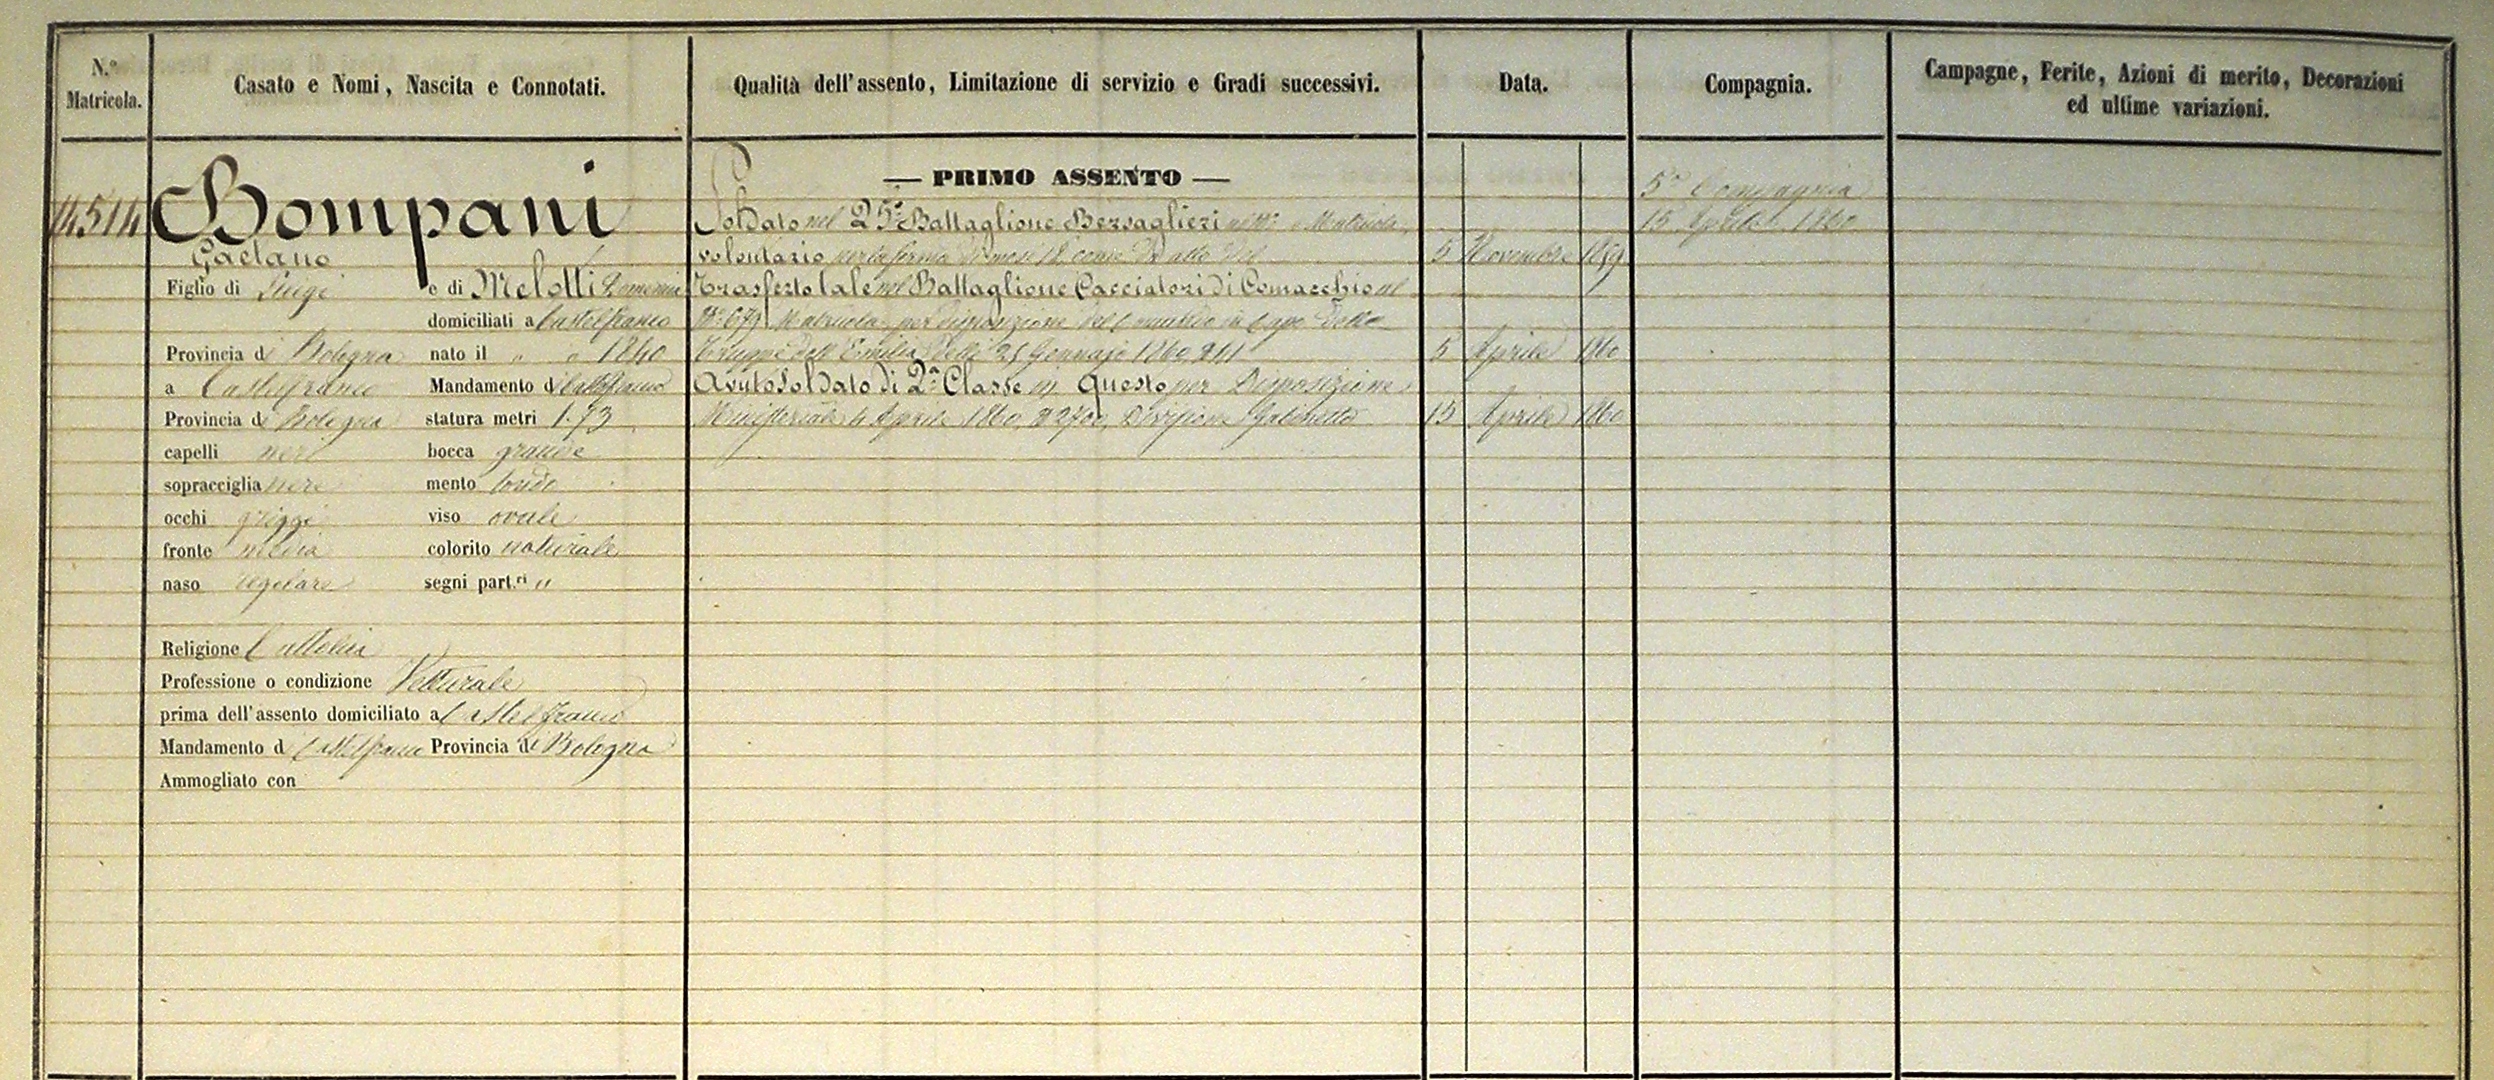 N.º Matricola.
Casato e Nomi, Nascita e Connotati.
Qualità dell'assento, Limitazione di servizio e Gradi successivi.
Data.
Compagnia.
Campagne, Ferite, Azioni di merito, Decorazioni
ed ultime variazioni.
14514
Bompani
Gaetano
Figlio di Luigi e di Melotti Domenica
domiciliati a Castelfranco
Provincia di Bologna nato il " " 1840
a Castelfranco Mandamento di Castelfranco
Provincia di Bologna statura metri 1.73
capelli neri bocca grande
sopracciglia nere mento tondo
occhi griggi viso ovale
fronte media colorito naturale
naso regolare segni part.ri "
Religione Cattolica
Professione o condizione Vetturale
prima dell'assento domiciliato a Castelfranco
Mandamento di Castelfranco Provincia di Bologna
Ammogliato con
— PRIMO ASSENTO —
Soldato nel 25º Battaglione Bersaglieri Matricola
volontario per la ferma di mesi 18 come da atto del 5 Novembre 1859
Trasferto tale nel Battaglione Cacciatori di Comacchio al
Nº 679 Matricola per disposizione del Comando in Capo delle
Truppe dell'Emilia delli 25 Gennajo 1860 5 Aprile 1860
Avuto Soldato di 2ª Classe in questo per Disposizione
Ministeriale 4 Aprile 1860, Nº 2700, Divisione Gabinetto 15 Aprile 1860
5ª Compagnia
15 Aprile 1860